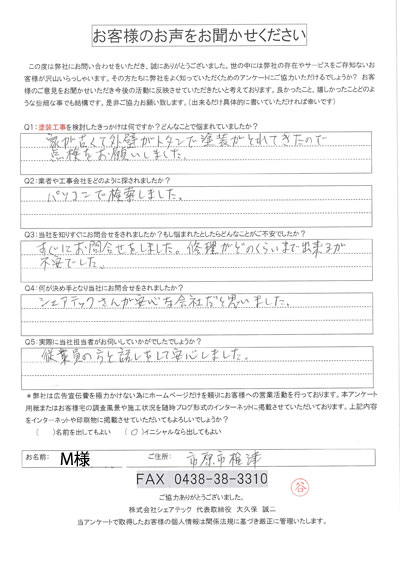 お客様のお声をお聞かせください
この度は弊社にお問い合わせをいただき、誠にありがとうございました。世の中には弊社の存在やサービスをご存知ないお
客様が沢山いらっしゃいます。その方たちに弊社をよく知っていただくためのアンケートにご協力いただけるでしょうか？ お客
様のご意見をお聞かせいただき今後の活動に反映させていただきたいと考えております。良かったこと、嬉しかったことどのよ
うな些細な事でも結構です。是非ご協力お願い致します。（出来るだけ具体的に書いていただければ幸いです）
Q1：塗装工事を検討したきっかけは何ですか？どんなことで悩まれていましたか？
家が古くて外壁がトタンで塗装がとれてきたので
点検をお願いしました。
Q2：業者や工事会社をどのように探されましたか？
パソコンで検索しました。
Q3：当社を知りすぐにお問合せをされましたか？もし悩まれたとしたらどんなことがご不安でしたか？
すぐにお問合せをしました。修理がどのくらいまで出来るか
不安でした。
Q4：何が決め手となり当社にお問合をされましたか？
シェアテックさんが安心な会社だと思いました。
Q5：実際に当社担当者がお伺いしていかがでしたでしょうか？
従業員の方と話しをして安心しました。
＊弊社は広告宣伝費を極力かけない為にホームページだけを頼りにお客様への営業活動を行っております。本アンケート
用紙またはお客様宅の調査風景や施工状況を随時ブログ形式のインターネットに掲載させていただいております。上記内容
をインターネットや印刷物に掲載させていただいてもよろしいでしょうか？
（ ）名前を出してもよい （○）イニシャルなら出してもよい
お名前： M様 ご住所： 市原市椎津
FAX 0438-38-3310
谷
ご協力ありがとうございました。
株式会社シェアテック 代表取締役 大久保 誠二
当アンケートで取得したお客様の個人情報は関係法規に基づき厳正に管理いたします。